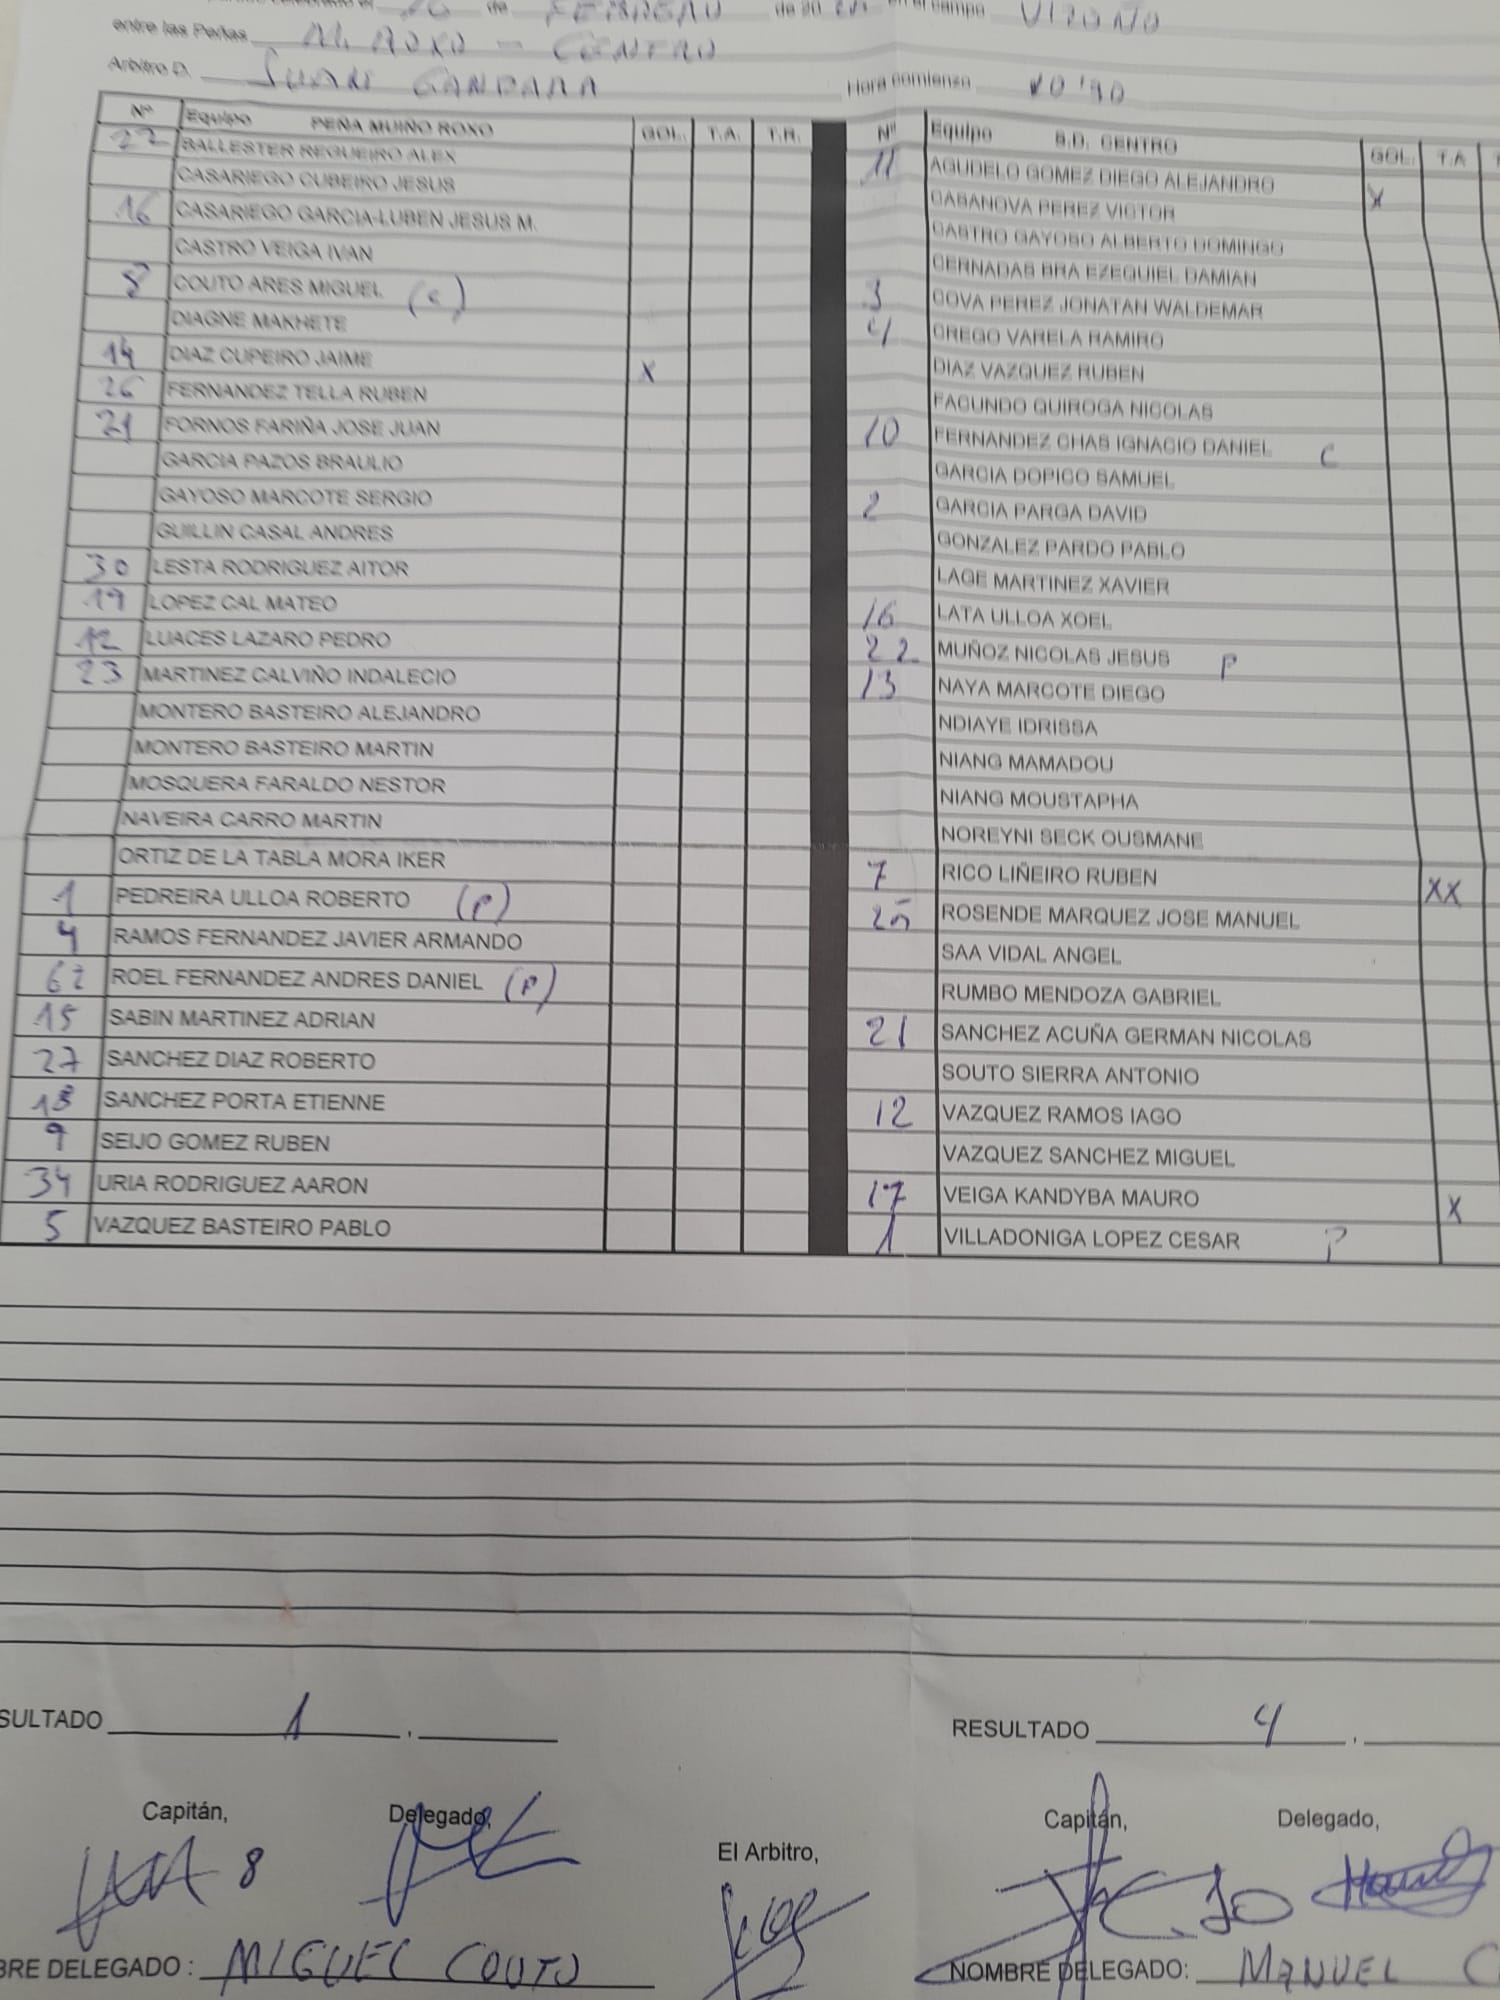 de FEBRERO de 20 en el campo VIZOÑO
entre las Peñas M. ROXO - CENTRO
Arbitro D. JUAN GANDARA Hora comienzo
Nº Equipo PEÑA MUIÑO ROXO GOL. T.A. T.R. Nº Equipo S.D. CENTRO GOL. T.A
22 BALLESTER REGUEIRO ALEX 11 AGUDELO GOMEZ DIEGO ALEJANDRO X
CASARIEGO CUBEIRO JESUS CASANOVA PEREZ VICTOR
16 CASARIEGO GARCIA-LUBEN JESUS M. CASTRO GAYOSO ALBERTO DOMINGO
CASTRO VEIGA IVAN CERNADAS BRA EZEQUIEL DAMIAN
8 COUTO ARES MIGUEL (c) 3 COVA PEREZ JONATAN WALDEMAR
DIAGNE MAKHETE 4 CREGO VARELA RAMIRO
14 DIAZ CUPEIRO JAIME X DIAZ VAZQUEZ RUBEN
26 FERNANDEZ TELLA RUBEN FACUNDO QUIROGA NICOLAS
21 FORNOS FARIÑA JOSE JUAN 10 FERNANDEZ CHAS IGNACIO DANIEL C
GARCIA PAZOS BRAULIO GARCIA DOPICO SAMUEL
GAYOSO MARCOTE SERGIO 2 GARCIA PARGA DAVID
GUILLIN CASAL ANDRES GONZALEZ PARDO PABLO
30 LESTA RODRIGUEZ AITOR LAGE MARTINEZ XAVIER
19 LOPEZ CAL MATEO 16 LATA ULLOA XOEL
12 LUACES LAZARO PEDRO 22 MUÑOZ NICOLAS JESUS P
23 MARTINEZ CALVIÑO INDALECIO 13 NAYA MARCOTE DIEGO
MONTERO BASTEIRO ALEJANDRO NDIAYE IDRISSA
MONTERO BASTEIRO MARTIN NIANG MAMADOU
MOSQUERA FARALDO NESTOR NIANG MOUSTAPHA
NAVEIRA CARRO MARTIN NOREYNI SECK OUSMANE
ORTIZ DE LA TABLA MORA IKER 7 RICO LIÑEIRO RUBEN XX
1 PEDREIRA ULLOA ROBERTO (P) 25 ROSENDE MARQUEZ JOSE MANUEL
4 RAMOS FERNANDEZ JAVIER ARMANDO SAA VIDAL ANGEL
62 ROEL FERNANDEZ ANDRES DANIEL (P) RUMBO MENDOZA GABRIEL
15 SABIN MARTINEZ ADRIAN 21 SANCHEZ ACUÑA GERMAN NICOLAS
27 SANCHEZ DIAZ ROBERTO SOUTO SIERRA ANTONIO
18 SANCHEZ PORTA ETIENNE 12 VAZQUEZ RAMOS IAGO
9 SEIJO GOMEZ RUBEN VAZQUEZ SANCHEZ MIGUEL
34 URIA RODRIGUEZ AARON 17 VEIGA KANDYBA MAURO X
5 VAZQUEZ BASTEIRO PABLO 1 VILLADONIGA LOPEZ CESAR P
SULTADO 1 . RESULTADO 4 .
Capitán, Delegado, El Arbitro, Capitán, Delegado,
8 10
BRE DELEGADO: MIGUEL COUTO NOMBRE DELEGADO: MANUEL C